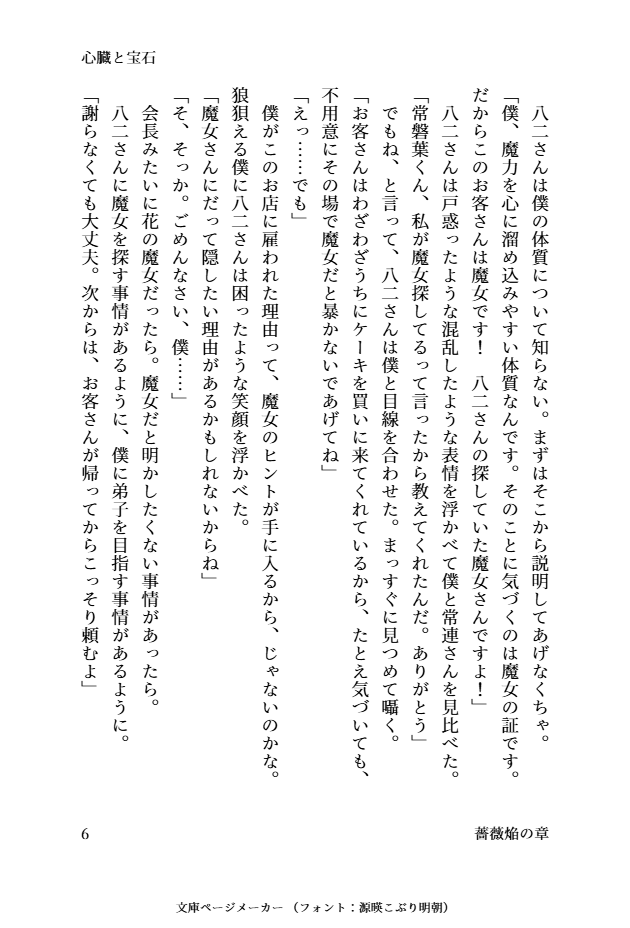 心臓と宝石
　八二さんは僕の体質について知らない。まずはそこから説明してあげなくちゃ。
「僕、魔力を心に溜め込みやすい体質なんです。そのことに気づくのは魔女の証です。
だからこのお客さんは魔女です！　八二さんの探していた魔女さんですよ！」
　八二さんは戸惑ったような混乱したような表情を浮かべて僕と常連さんを見比べた。
「常磐葉くん、私が魔女探してるって言ったから教えてくれたんだ。ありがとう」
　でもね、と言って、八二さんは僕と目線を合わせた。まっすぐに見つめて囁く。
「お客さんはわざわざうちにケーキを買いに来てくれているから、たとえ気づいても、
不用意にその場で魔女だと暴かないであげてね」
「えっ……でも」
　僕がこのお店に雇われた理由って、魔女のヒントが手に入るから、じゃないのかな。
狼狽える僕に八二さんは困ったような笑顔を浮かべた。
「魔女さんにだって隠したい理由があるかもしれないからね」
「そ、そっか。ごめんなさい、僕……」
　会長みたいに花の魔女だったら。魔女だと明かしたくない事情があったら。
　八二さんに魔女を探す事情があるように、僕に弟子を目指す事情があるように。
「謝らなくても大丈夫。次からは、お客さんが帰ってからこっそり頼むよ」
薔薇焔の章
6
文庫ページメーカー（フォント：源暎こぶり明朝）